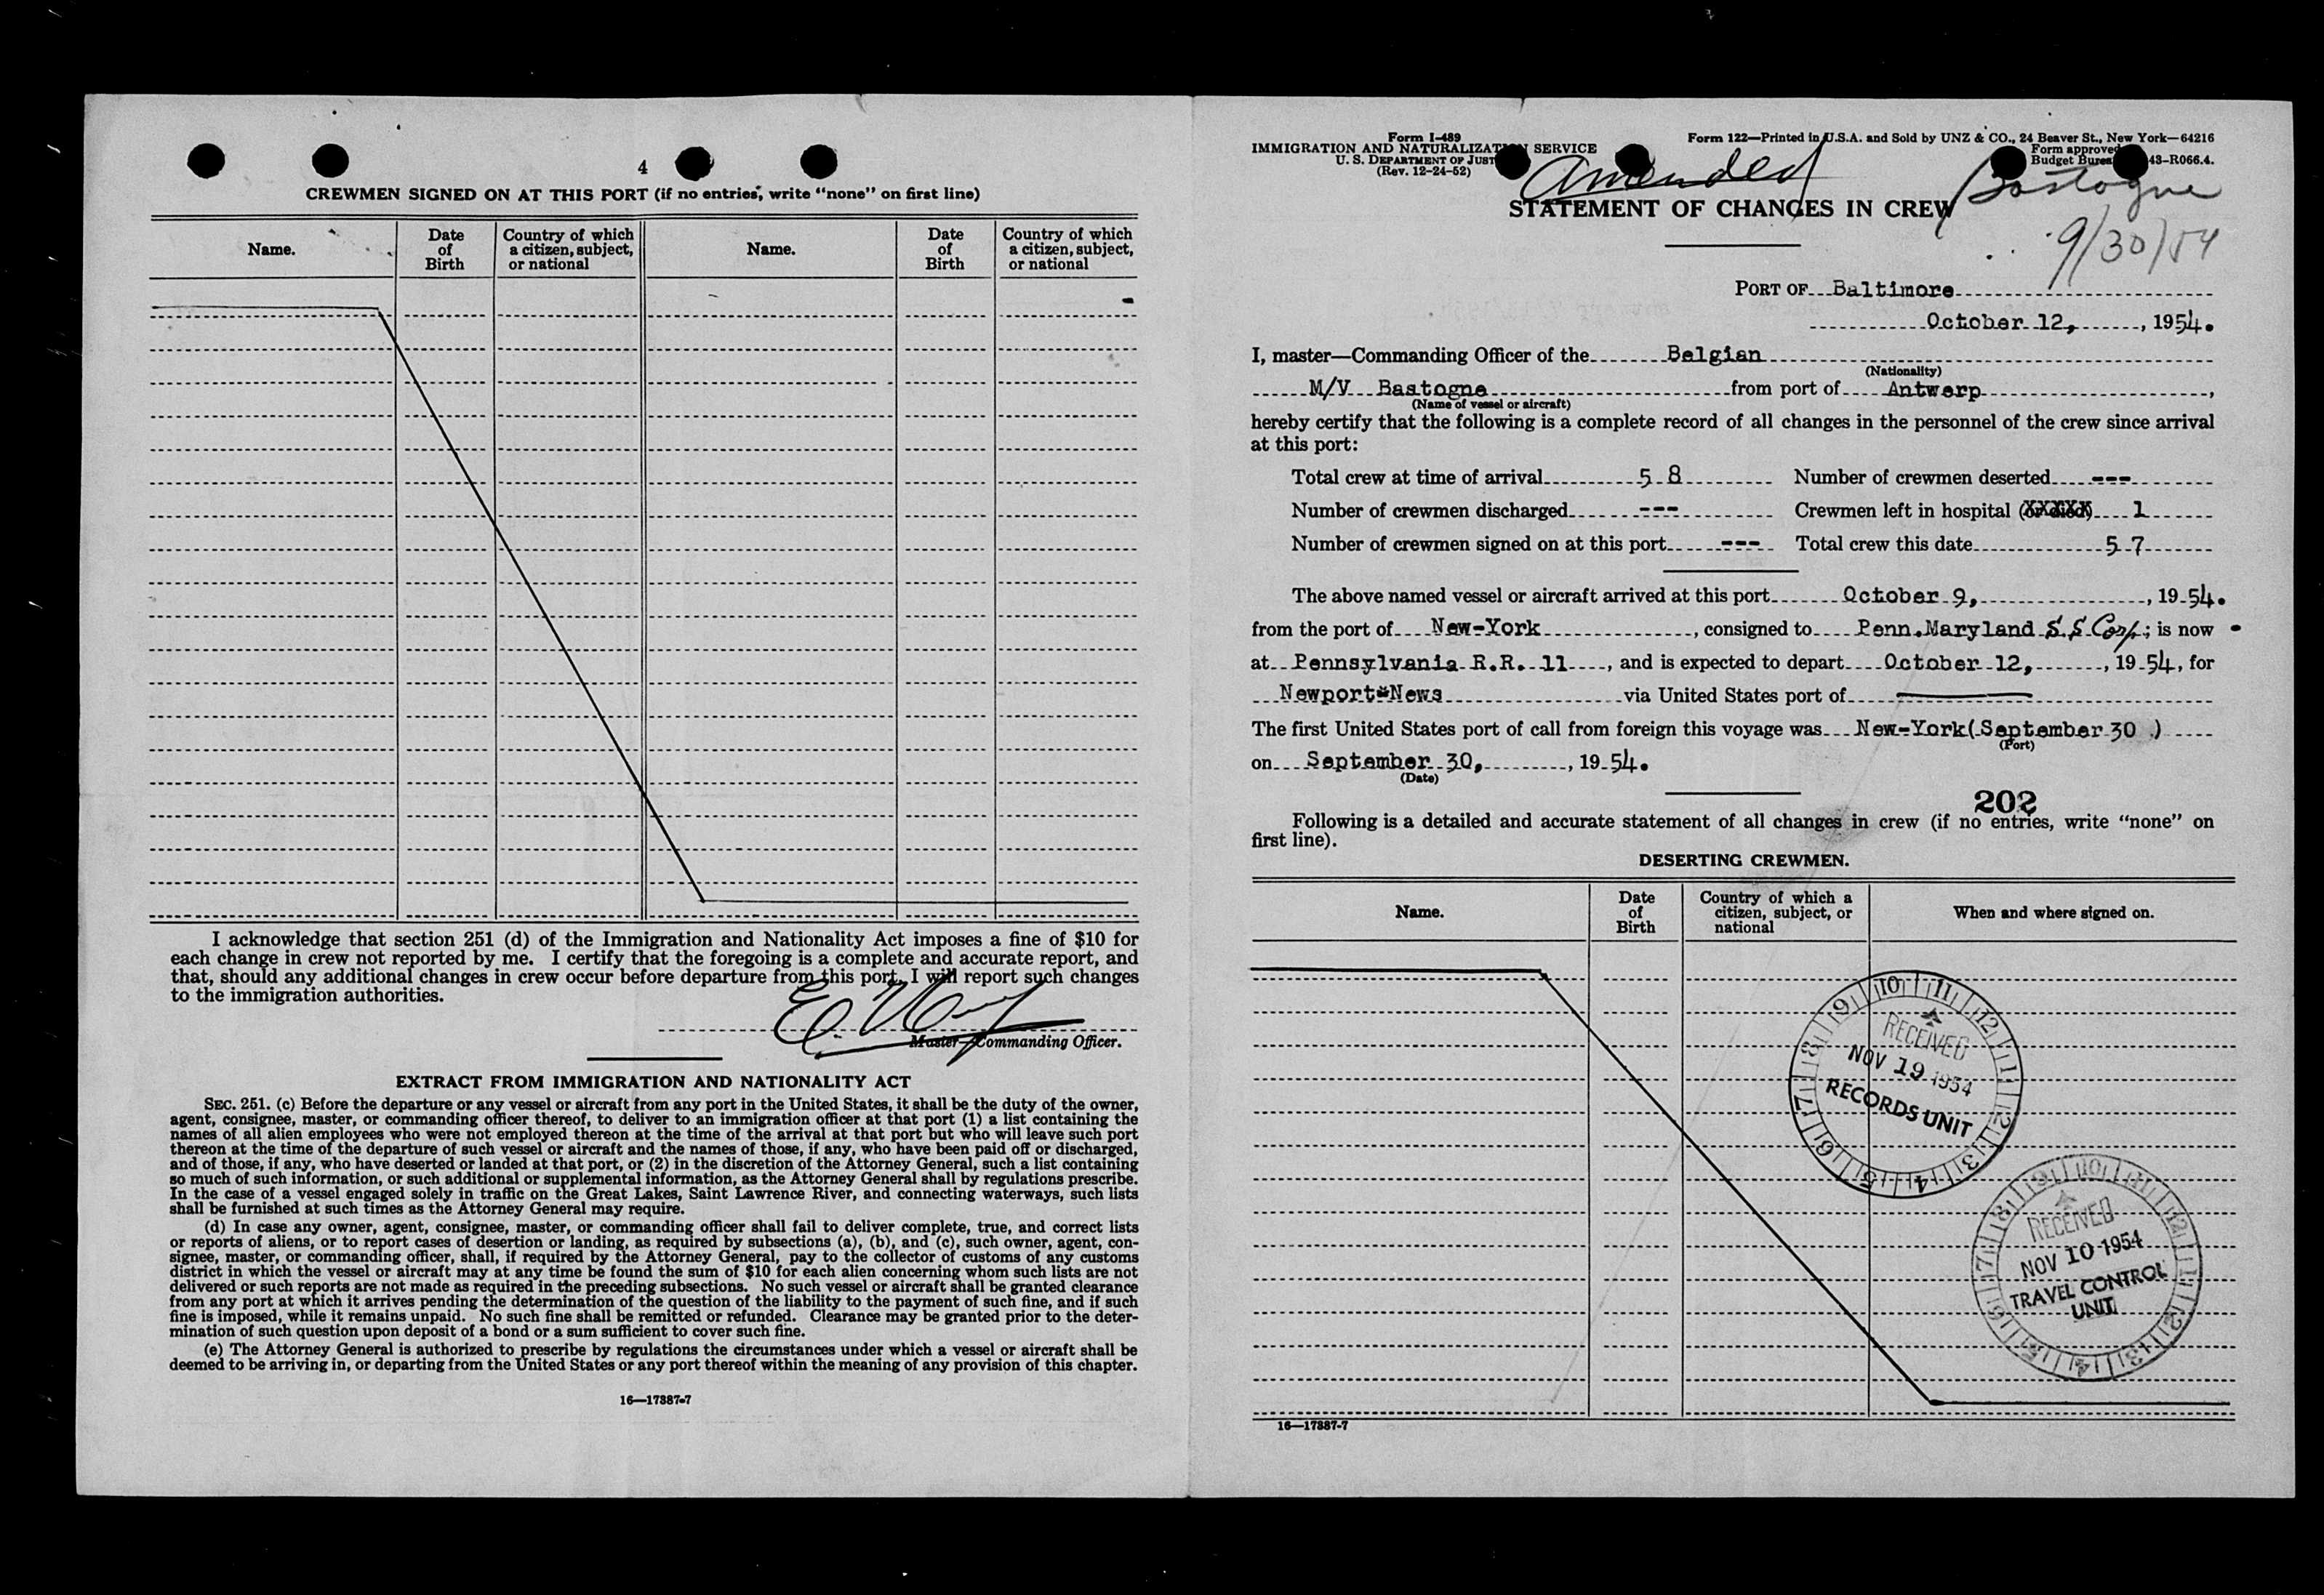 4
CREWMEN SIGNED ON AT THIS PORT (if no entries, write "none" on first line)
Name. Date of Birth Country of which a citizen, subject, or national Name. Date of Birth Country of which a citizen, subject, or national
I acknowledge that section 251 (d) of the Immigration and Nationality Act imposes a fine of $10 for
each change in crew not reported by me. I certify that the foregoing is a complete and accurate report, and
that, should any additional changes in crew occur before departure from this port, I will report such changes
to the immigration authorities.
Master—Commanding Officer.
EXTRACT FROM IMMIGRATION AND NATIONALITY ACT
SEC. 251. (c) Before the departure or any vessel or aircraft from any port in the United States, it shall be the duty of the owner,
agent, consignee, master, or commanding officer thereof, to deliver to an immigration officer at that port (1) a list containing the
names of all alien employees who were not employed thereon at the time of the arrival at that port but who will leave such port
thereon at the time of the departure of such vessel or aircraft and the names of those, if any, who have been paid off or discharged,
and of those, if any, who have deserted or landed at that port, or (2) in the discretion of the Attorney General, such a list containing
so much of such information, or such additional or supplemental information, as the Attorney General shall by regulations prescribe.
In the case of a vessel engaged solely in traffic on the Great Lakes, Saint Lawrence River, and connecting waterways, such lists
shall be furnished at such times as the Attorney General may require.
(d) In case any owner, agent, consignee, master, or commanding officer shall fail to deliver complete, true, and correct lists
or reports of aliens, or to report cases of desertion or landing, as required by subsections (a), (b), and (c), such owner, agent, con-
signee, master, or commanding officer, shall, if required by the Attorney General, pay to the collector of customs of any customs
district in which the vessel or aircraft may at any time be found the sum of $10 for each alien concerning whom such lists are not
delivered or such reports are not made as required in the preceding subsections. No such vessel or aircraft shall be granted clearance
from any port at which it arrives pending the determination of the question of the liability to the payment of such fine, and if such
fine is imposed, while it remains unpaid. No such fine shall be remitted or refunded. Clearance may be granted prior to the deter-
mination of such question upon deposit of a bond or a sum sufficient to cover such fine.
(e) The Attorney General is authorized to prescribe by regulations the circumstances under which a vessel or aircraft shall be
deemed to be arriving in, or departing from the United States or any port thereof within the meaning of any provision of this chapter.
16—17387-7
Form I-489
IMMIGRATION AND NATURALIZATION SERVICE
U. S. DEPARTMENT OF JUST
(Rev. 12-24-52)
Form 122—Printed in U.S.A. and Sold by UNZ & CO., 24 Beaver St., New York—64216
Form approved
Budget Burea 43-R066.4.
Amended
Bastogne
9/30/54
STATEMENT OF CHANGES IN CREW
PORT OF Baltimore
October 12, , 1954.
I, master—Commanding Officer of the Belgian
(Nationality)
M/V Bastogne from port of Antwerp ,
(Name of vessel or aircraft)
hereby certify that the following is a complete record of all changes in the personnel of the crew since arrival
at this port:
Total crew at time of arrival 5 8 Number of crewmen deserted ---
Number of crewmen discharged --- Crewmen left in hospital (or died) 1
Number of crewmen signed on at this port --- Total crew this date 5 7
The above named vessel or aircraft arrived at this port October 9, , 19 54.
from the port of New-York , consigned to Penn.Maryland S.S Corp.; is now
at Pennsylvania R.R. 11 , and is expected to depart October 12, , 19 54, for
Newport-News via United States port of
The first United States port of call from foreign this voyage was New-York( September 30 )
(Port)
on September 30, , 19 54.
(Date)
202
Following is a detailed and accurate statement of all changes in crew (if no entries, write "none" on
first line).
DESERTING CREWMEN.
Name. Date of Birth Country of which a citizen, subject, or national When and where signed on.
10 11 12 1 2 3 4 5 6 7 8 9
RECEIVED
NOV 19 1954
RECORDS UNIT
10 11 12 1 2 3 4 5 6 7 8 9
RECEIVED
NOV 10 1954
TRAVEL CONTROL
UNIT
16—17387-7